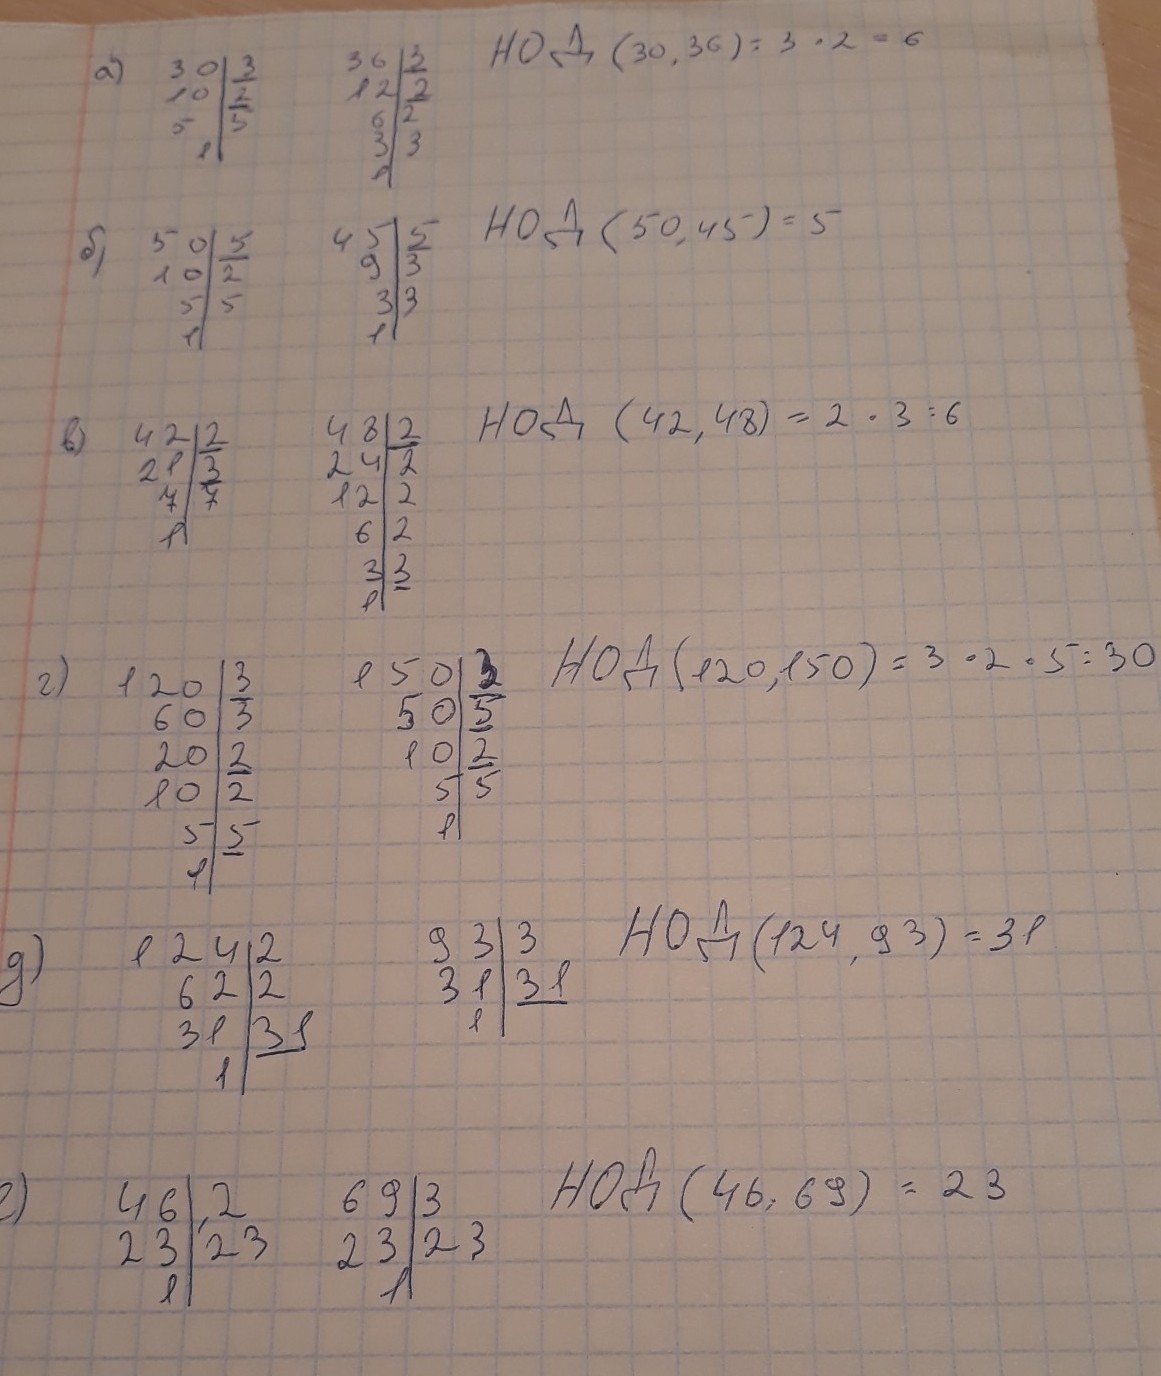 а) 30|3 36|3 НОД (30,36) = 3 · 2 = 6
10|2 12|2
5|5 6|2
1| 3|3
1|
б) 50|5 45|5 НОД (50,45) = 5
10|2 9|3
5|5 3|3
1| 1|
в) 42|2 48|2 НОД (42,48) = 2 · 3 = 6
21|3 24|2
7|7 12|2
1| 6|2
3|3
1|
г) 120|3 150|3 НОД (120,150) = 3 · 2 · 5 = 30
60|3 50|5
20|2 10|2
10|2 5|5
5|5 1|
1|
д) 124|2 93|3 НОД (124,93) = 31
62|2 31|31
31|31 1|
1|
е) 46|2 69|3 НОД (46,69) = 23
23|23 23|23
1| 1|